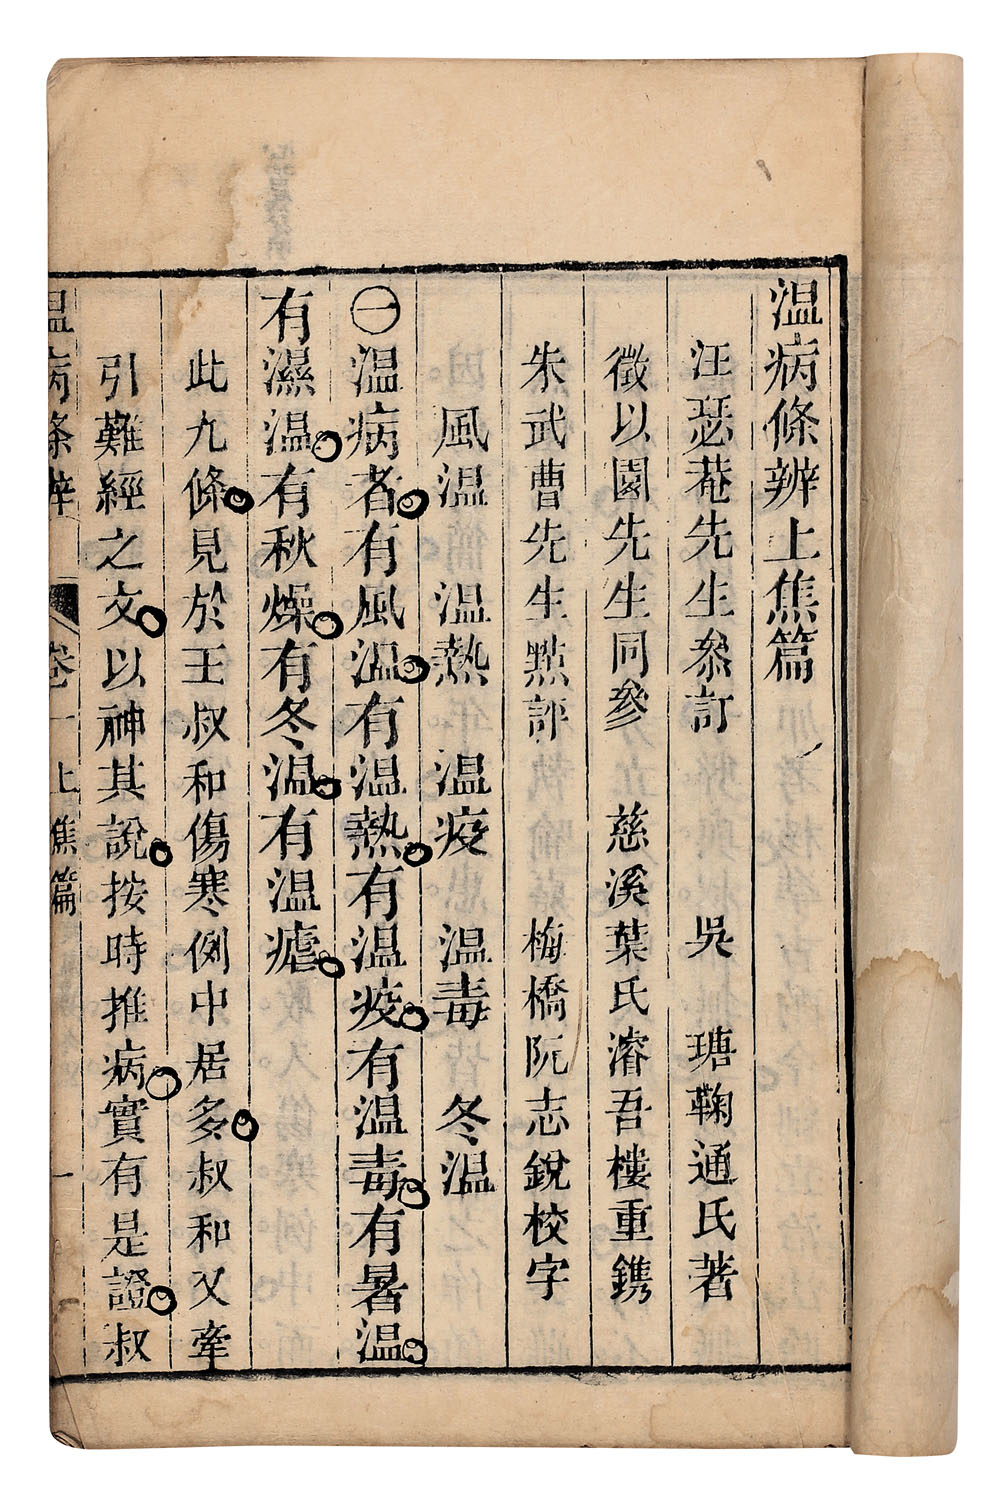 温病條辨上焦篇
汪瑟菴先生叅訂　吳　瑭鞠通氏著
徵以園先生同參　慈溪葉氏濬吾樓重鐫
朱武曹先生點評　梅橋阮志銳校字
風温　温熱　温疫　温毒　冬温
㊀温病者有風温有温熱有温疫有温毒有暑温
有濕温有秋燥有冬温有温瘧
此九條見於王叔和傷寒例中居多叔和又牽
引難經之文以神其說按時推病實有是證叔
温病條辨　卷一　上焦篇　一